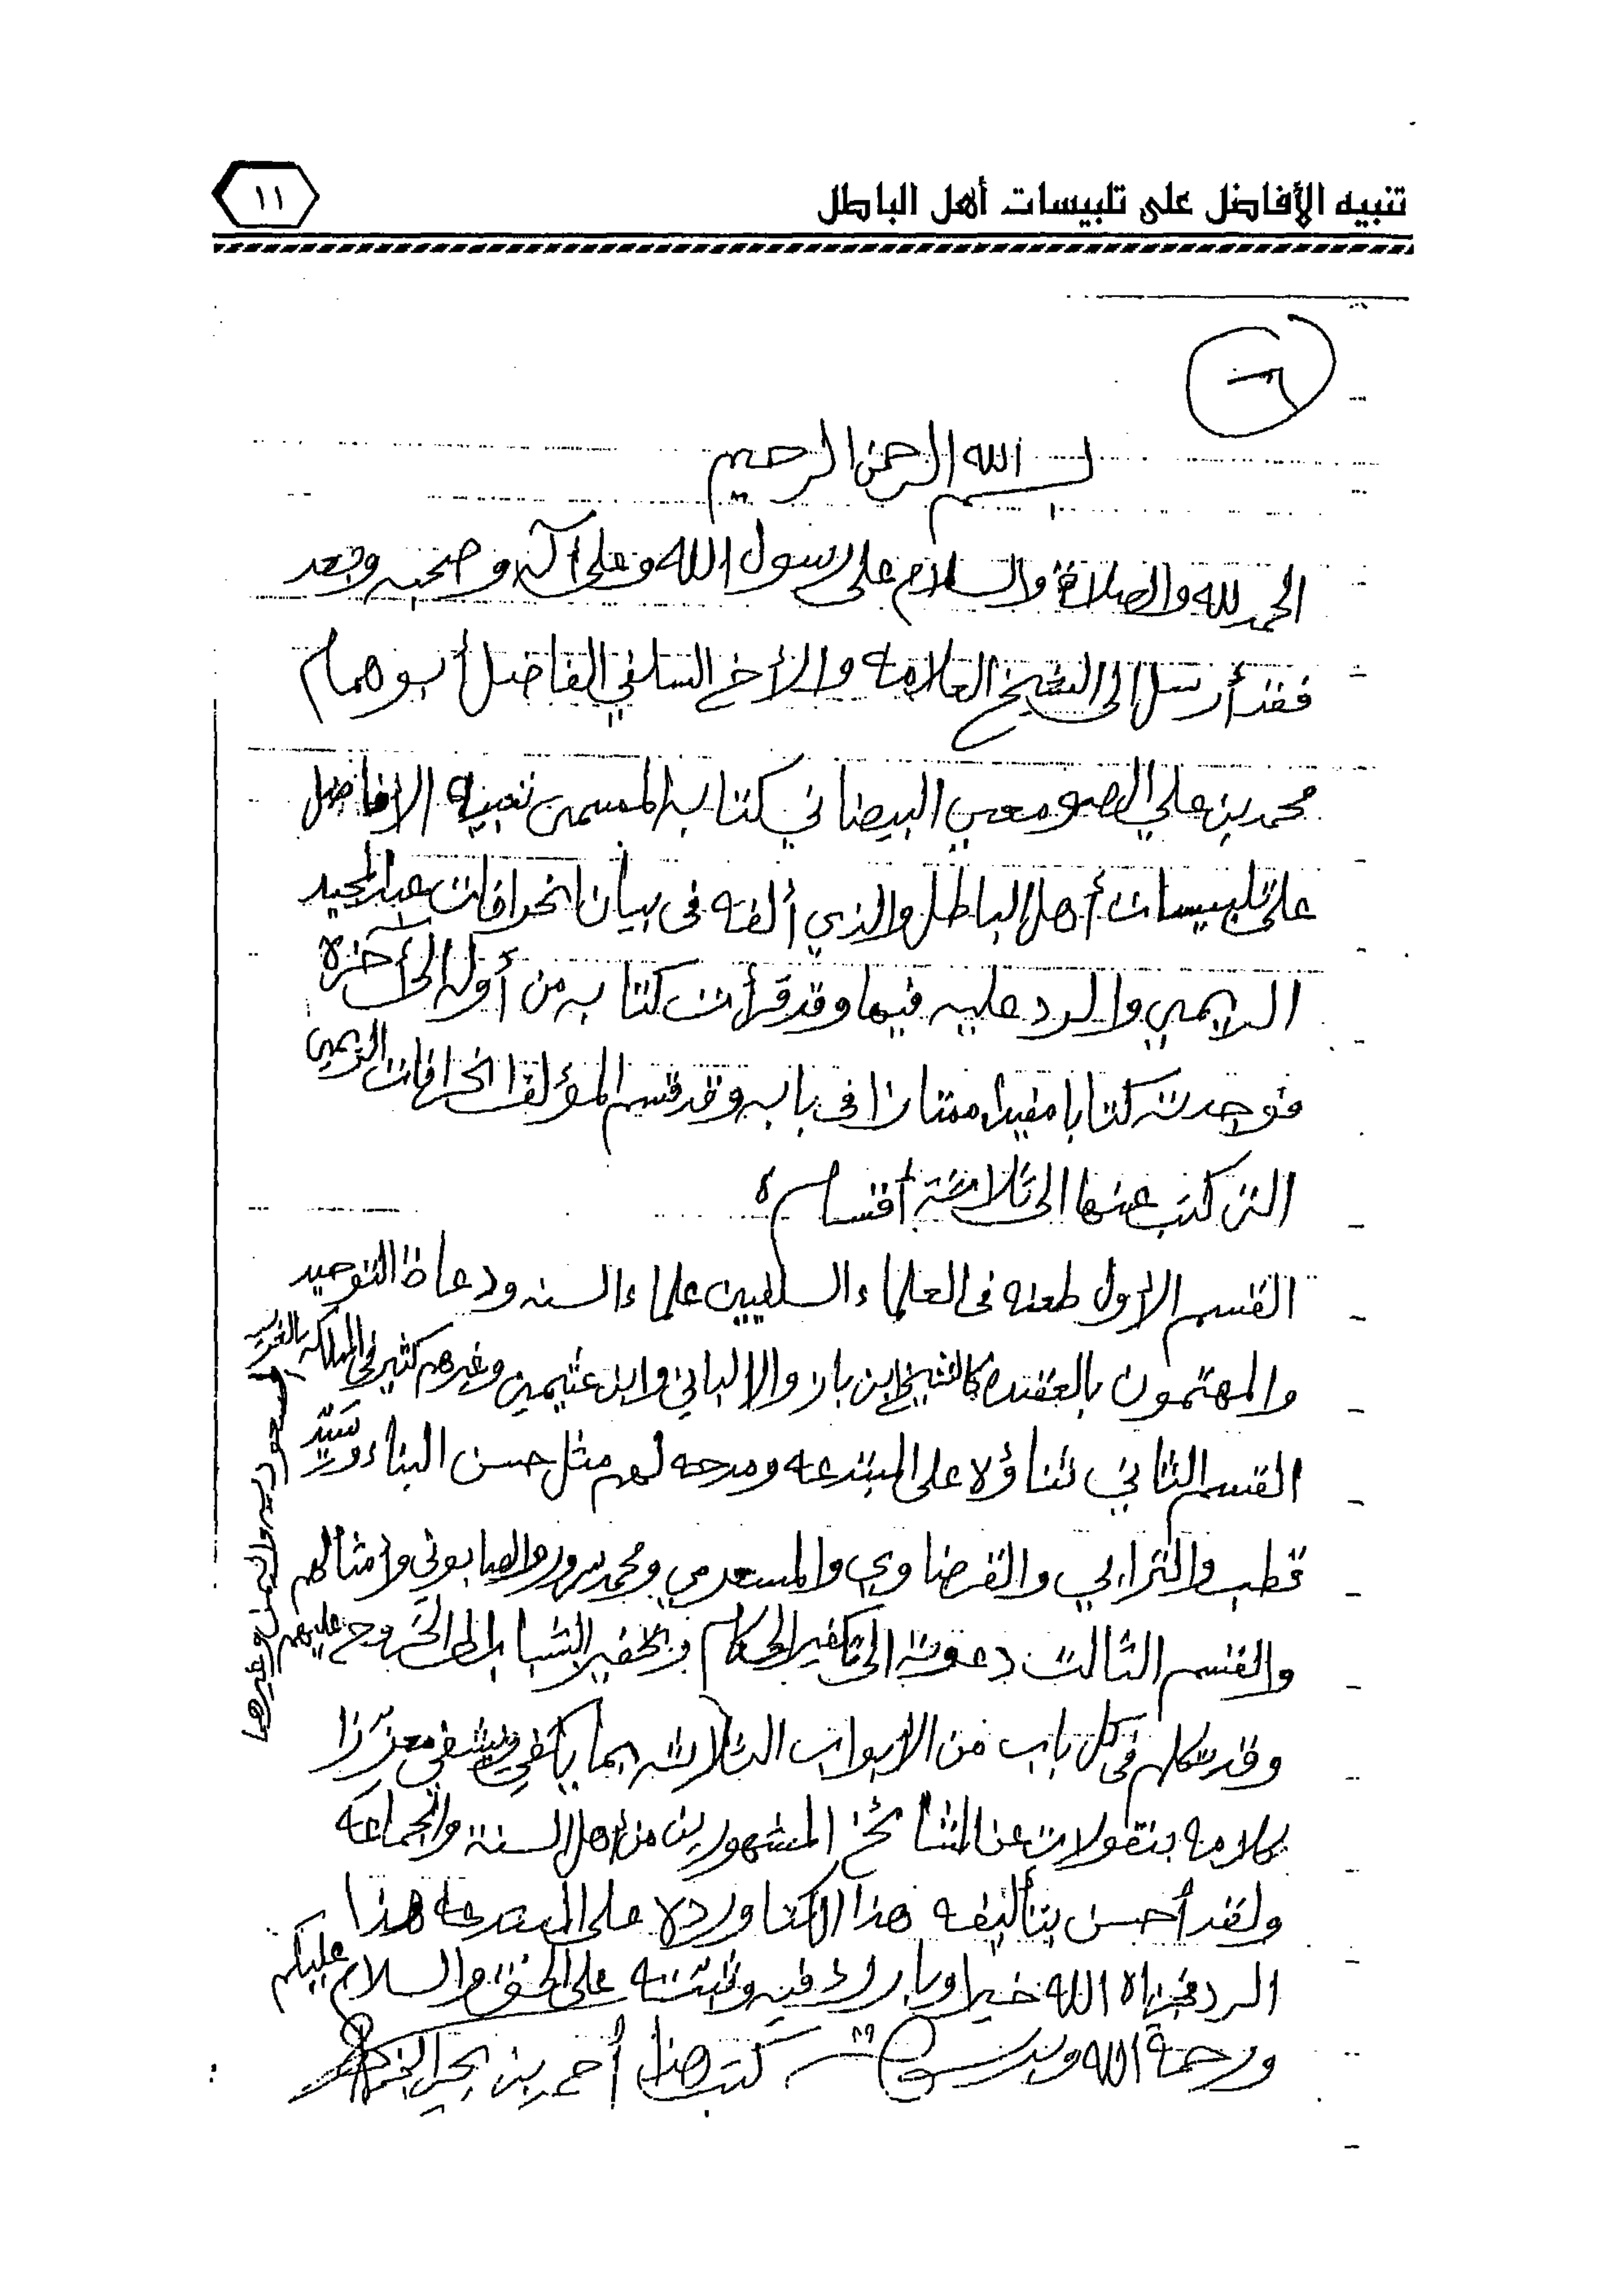 تنبيه الأفاضل على تلبيسات أهل الباطل
١١
بسم الله الرحمن الرحيم
الحمد لله والصلاة والسلام على رسول الله وعلى آله وصحبه وبعد
فقد أرسل الي الشيخ العلامه والأخ السلفي الفاضل أبو همام
محمد بن علي الصومعي البيضاني كتابه المسمى تنبيه الافاضل
على تلبيسات أهل الباطل والذي ألفه في بيان انحرافات عبد المجيد
الريمي والرد عليه فيها وقد قرأت كتابه من أوله الى أخره
فوجدته كتابا مفيدا ممتازا في بابه وقد قسم المؤلف انحرافات الريمي
التى كتب عنها الى ثلاثة أقسام
القسم الأول طعنه في العلماء السلفيين علماء السنه ودعاة التوحيد
والمهتمون بالعقيدة كالشيخ ابن باز والالباني وابن عثيمين وغيرهم كثير في المملكه العربيه
السعوديه واليمن وغيرها
القسم الثاني ثناؤه على المبتدعه ومدحه لهم مثل حسن البناء وسيد
قطب والترابي والقرضاوي والمسعري ومحمد سرور والصابوني وامثالهم
والقسم الثالث دعوته الى تكفير الحكام وتحفيز الشباب الى الخروج عليهم
وقد تكلم في كل باب من الابواب الثلاثه بما يكفي ويشفي معززا
كلامه بنقولات عن المشائخ المشهورين من أهل السنة والجماعه
ولقد أحسن بتأليفه هذا الكتا ورده على المبتدعة هذا
الرد فجزاه الله خيرا وبارك فيه وثبته على الحق والسلام عليكم
ورحمة الله وبركاته كتب هذا أحمد بن يحي النجمي